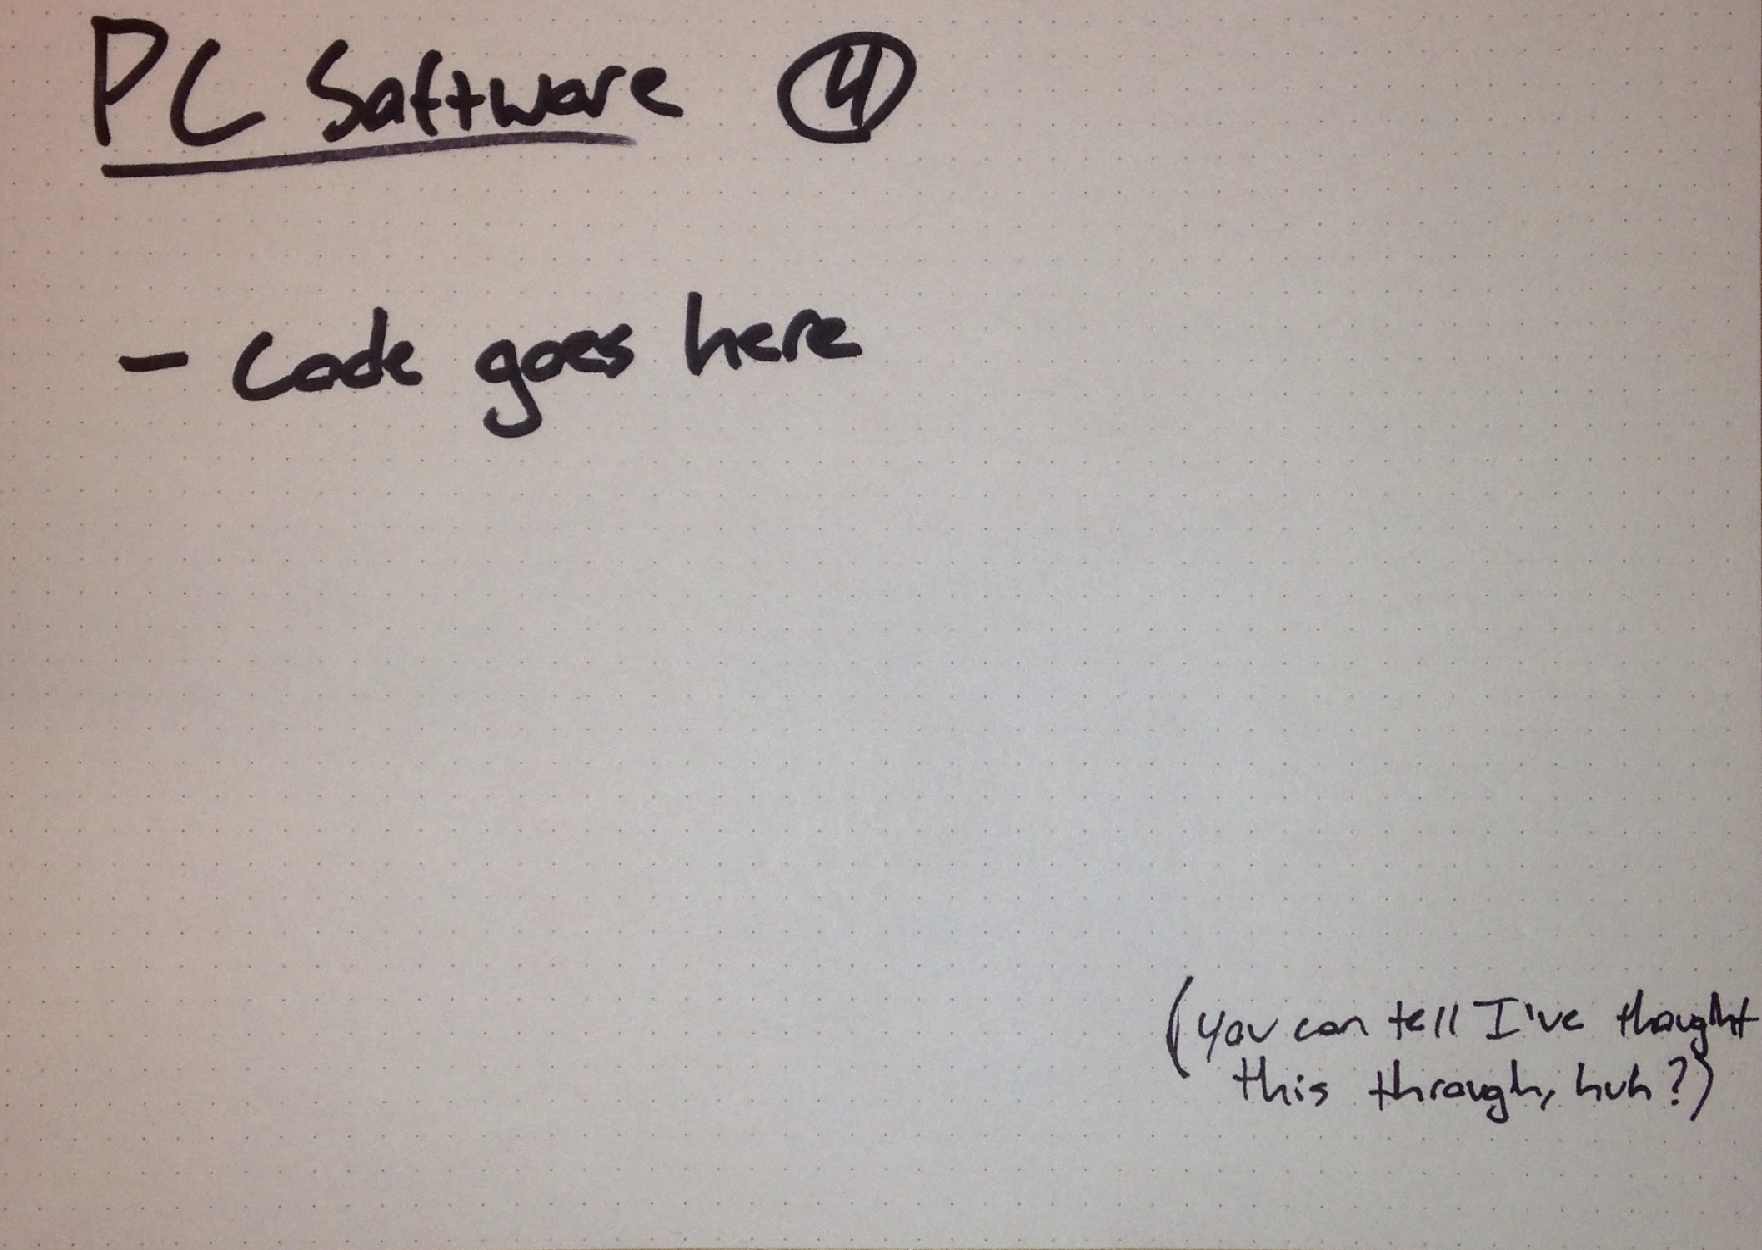 PC Software 4
- Code goes here
(you can tell I've thought
this through, huh?)